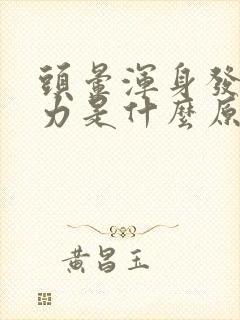 頭暈渾身發
力是什麼原
黃昌玉